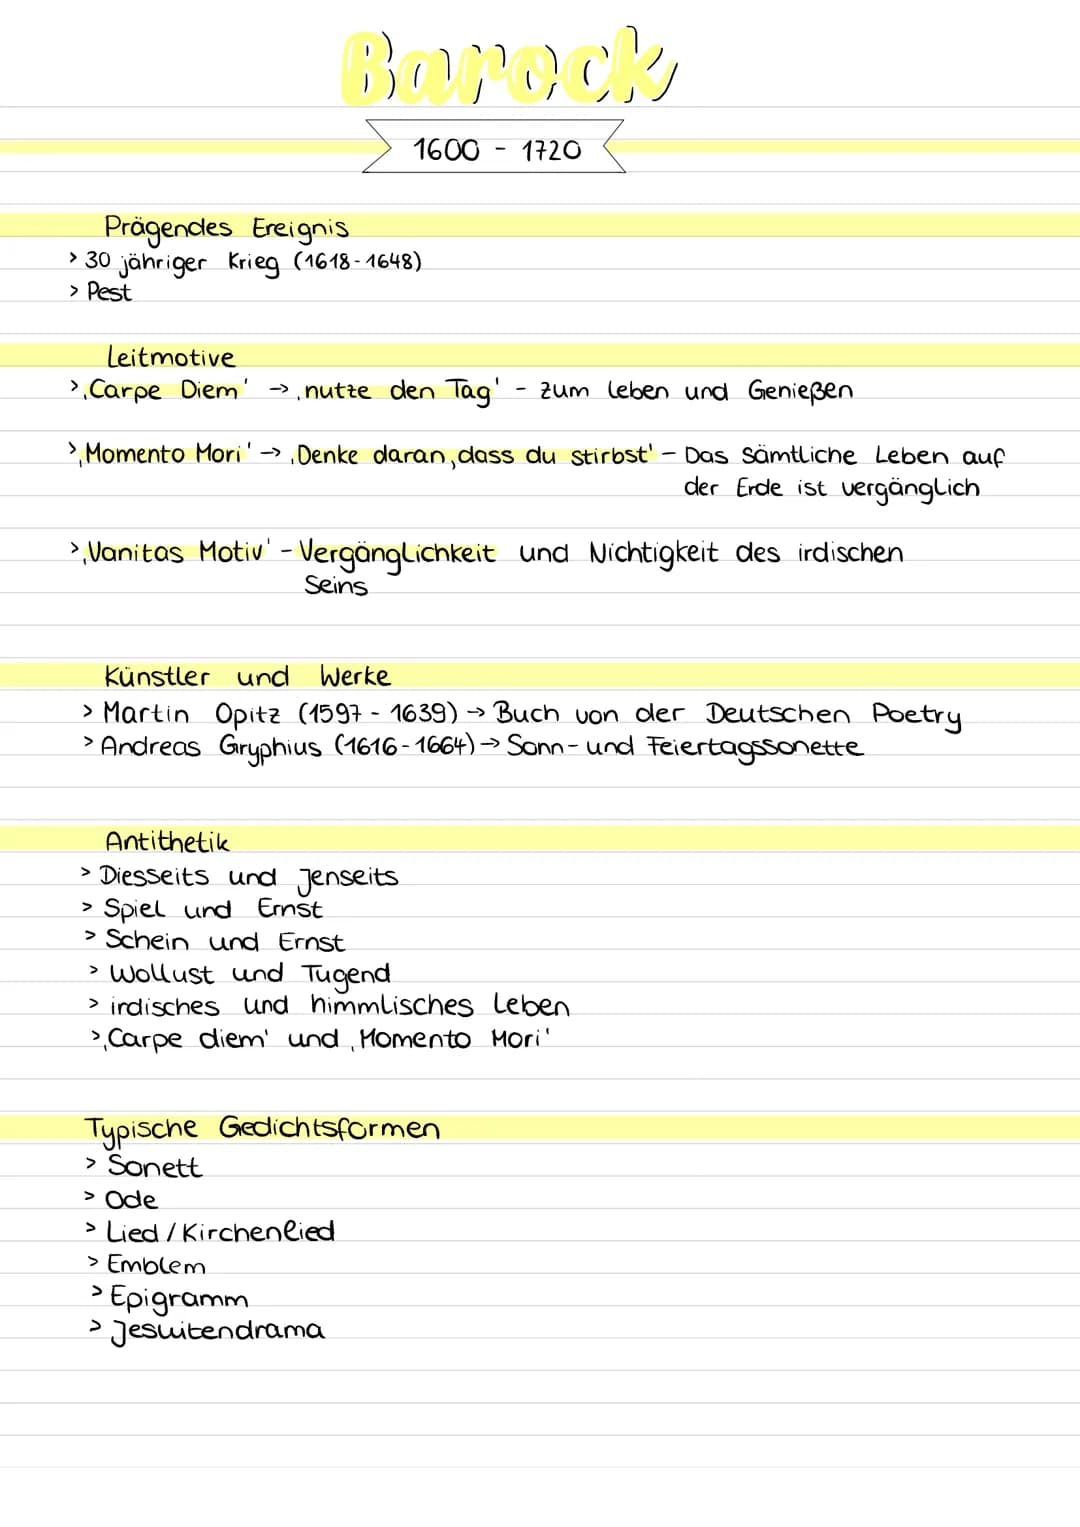 Barock
1600 - 1720
Prägendes Ereignis
> 30 jähriger Krieg (1618-1648)
> Pest
Leitmotive
> ‚Carpe Diem' → ‚nutze den Tag' - zum leben und Genießen
> ‚Momento Mori' → ‚Denke daran, dass du stirbst' - Das Sämtliche Leben auf
der Erde ist vergänglich
> ‚Vanitas Motiv' - Vergänglichkeit und Nichtigkeit des irdischen
Seins
Künstler und Werke
> Martin Opitz (1597 - 1639) → Buch von der Deutschen Poetry
> Andreas Gryphius (1616-1664) → Sonn- und Feiertagssonette
Antithetik
> Diesseits und Jenseits
> Spiel und Ernst
> Schein und Ernst
> Wollust und Tugend
> irdisches und himmlisches Leben
> ‚Carpe diem' und ‚Momento Mori'
Typische Gedichtsformen
> Sonett
> Ode
> Lied / Kirchenlied
> Emblem
> Epigramm
> Jesuitendrama